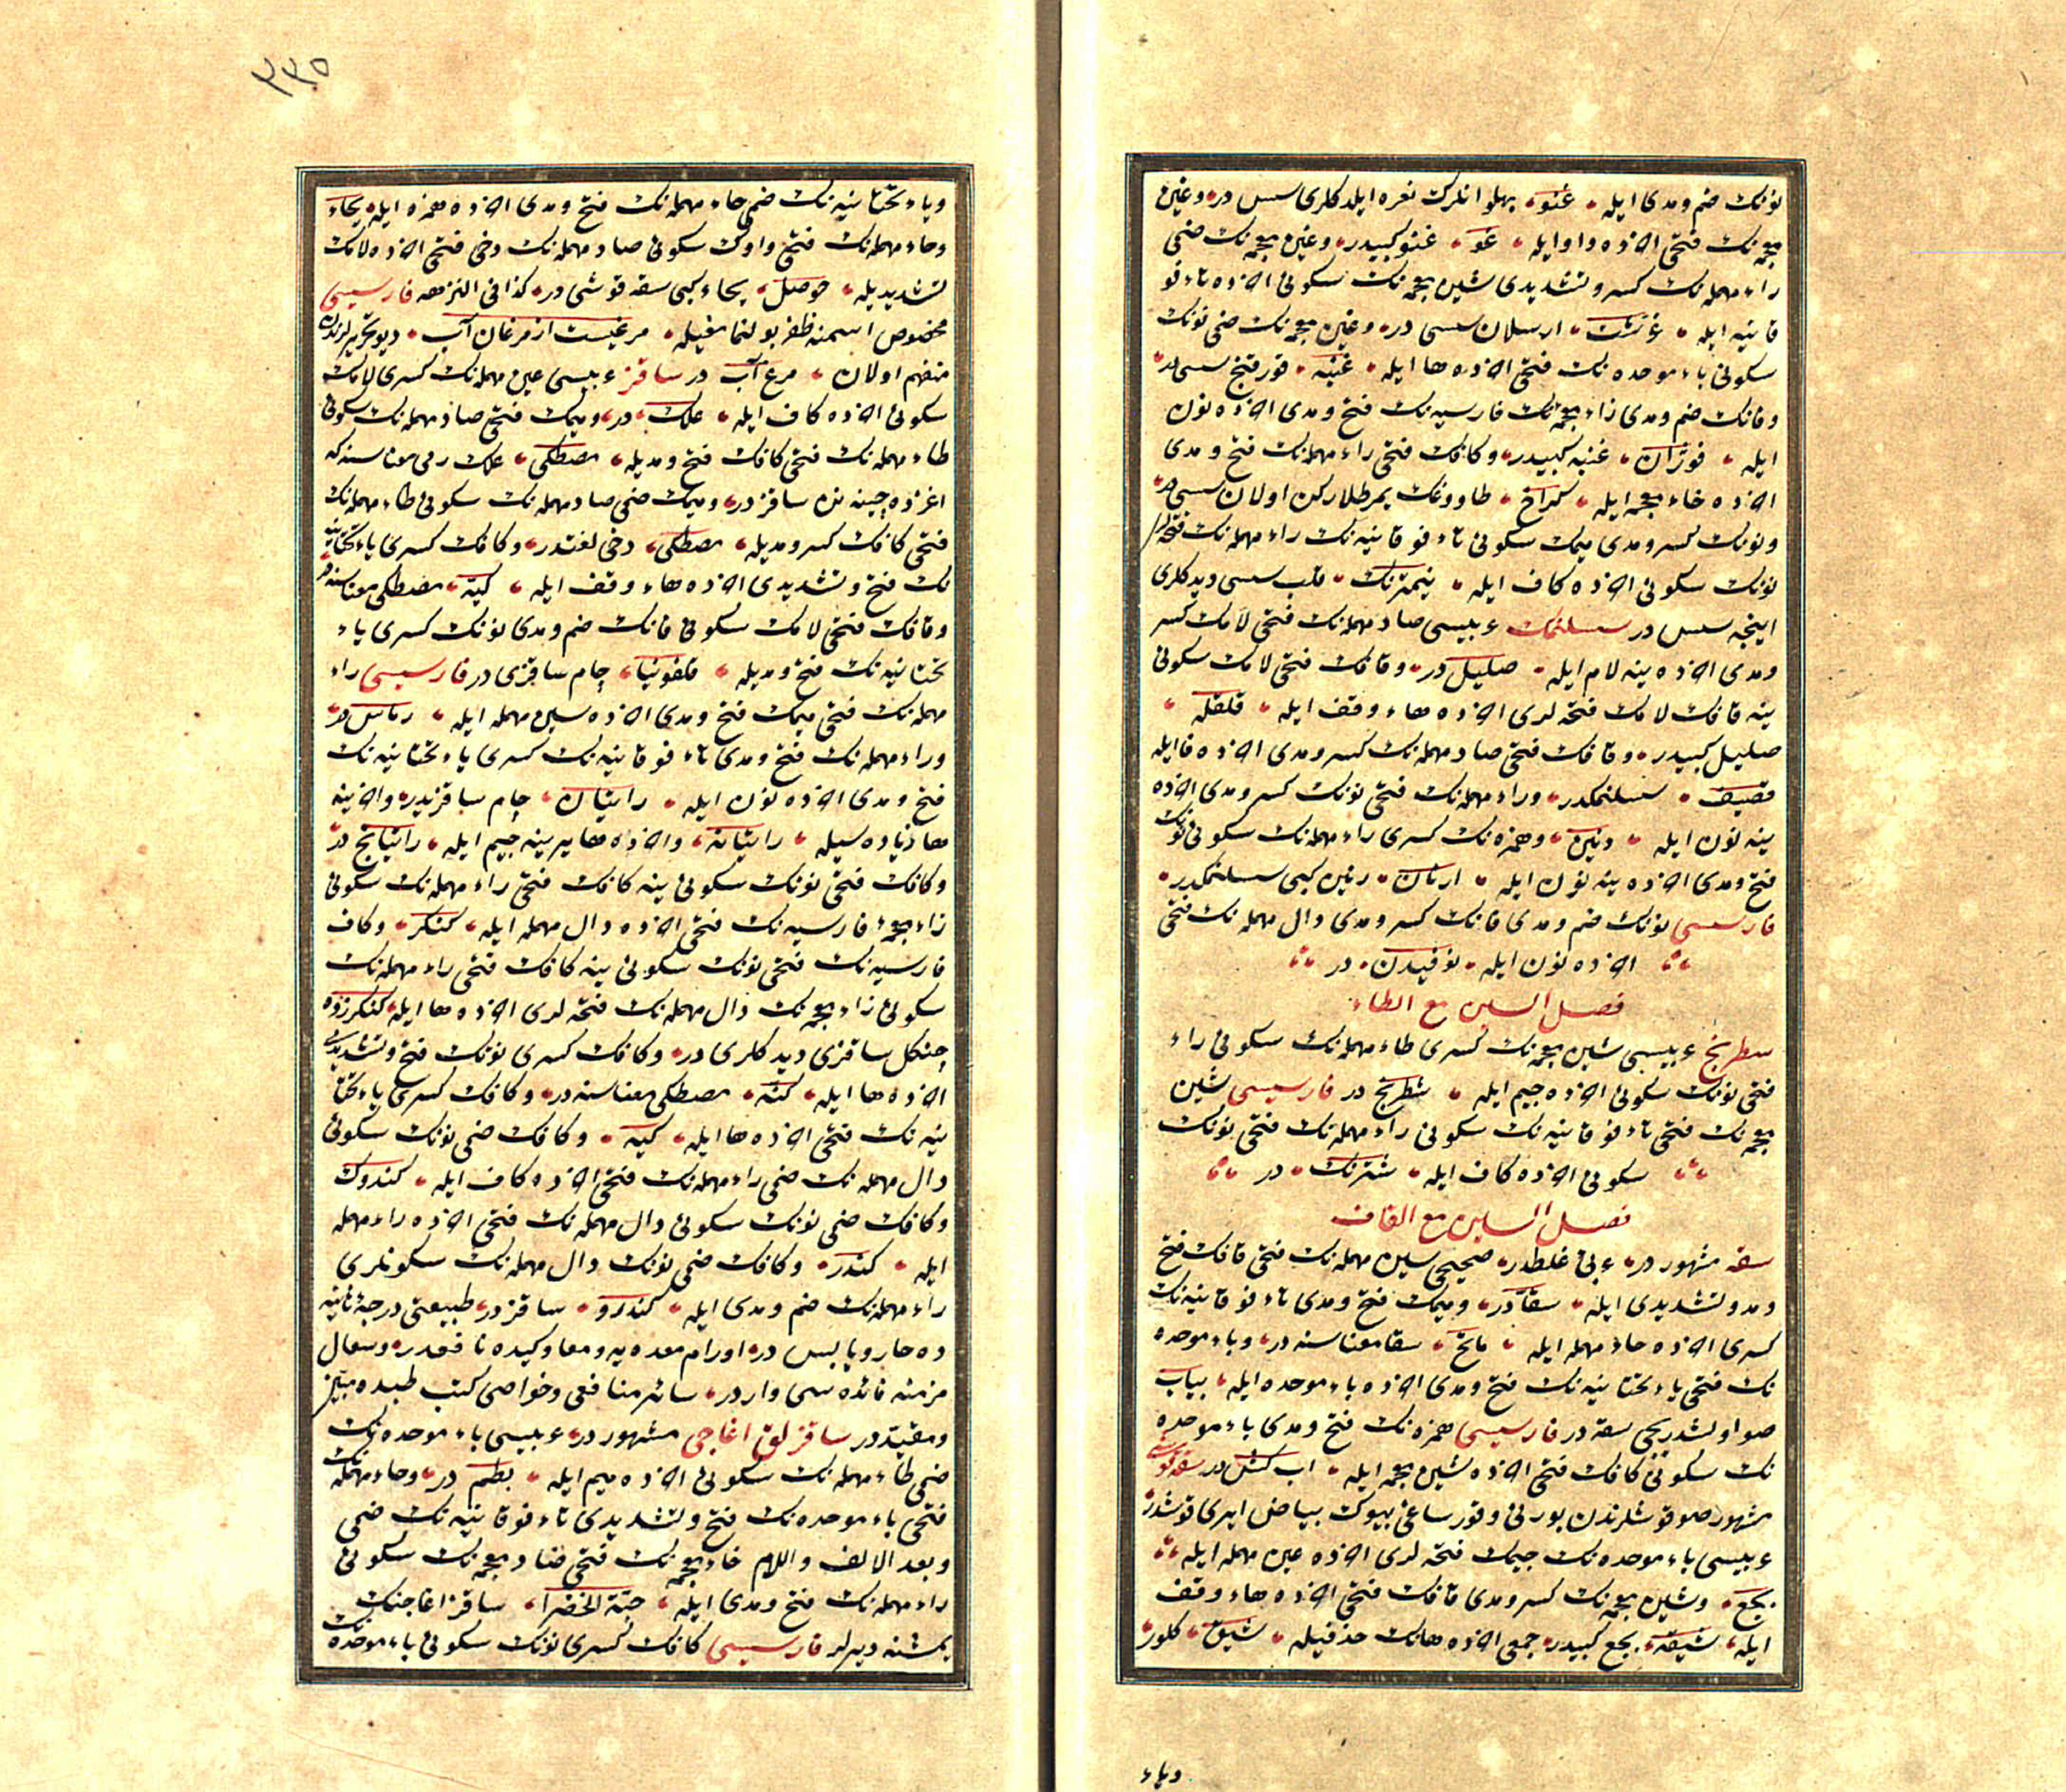 نونك ضم و مدى ايله غنو بهلوانلرك نعره ايلدكلرى سس در وغين
معجمه نك فتحى اخرده واو ايله غو غنو كبيدر وغين معجمه نك ضمى
راء مهمله نك كسر و تشديدى شين معجمه نك سكونى اخرده تاء فو
قانيه ايله غرشت ارسلان سسى در وغين معجمه نك ضمى نونك
سكونى باء موحده نك فتحى اخرده ها ايله غنبه قورقنج سسى در
وفانك ضم ومدى زاء معجمه نك فارسيه نك فتح ومدى اخرده نون
ايله فوژان غنبه كبيدر وكافك فتحى راء مهمله نك فتح و مدى
اخرده خاء معجمه ايله كراخ طاووغك يمرطلاركن اولان سسى در
ونونك كسر ومدى ميمك سكونى تاء فوقانيه نك راء مهمله نك فتحه لرى
نونك سكونى اخرده كاف ايله نيمترنك قلب سسى ديدكلرى
اينجه سس در سسلنمك عربيسى صاد مهمله نك فتحى لامك كسر
ومدى اخرده ينه لام ايله صليل در وقافك فتحى لامك سكونى
ينه قافك لامك فتحه لرى اخرده هاء وقف ايله قلقله
صليل كبيدر وقافك فتحى صاد مهمله نك كسر ومدى اخرده فا ايله
قصيف سسلنمكدر وراء مهمله نك فتحى نونك كسر ومدى اخرده
ينه نون ايله رنين وهمزه نك كسرى راء مهمله نك سكونى نونك
فتح ومدى اخرده ينه نون ايله ارنان رنين كبى سسلنمكدر
فارسيسى نونك ضم ومدى فانك كسر ومدى دال مهمله نك فتحى
اخرده نون ايله نوفيدن در
فصل السين مع الطاء
سطرنج عربيسى شين معجمه نك كسرى طاء مهمله نك سكونى راء
فتحى نونك سكونى اخرده جيم ايله شطرنج در فارسيسى شين
معجمه نك فتحى تاء فوقانيه نك سكونى راء مهمله نك فتحى نونك
سكونى اخرده كاف ايله شترنك در
فصل السين مع القاف
سقه مشهور در عربى غلطدر صحيحى سين مهمله نك فتحى قافك فتح
ومد وتشديدى ايله سقا در وميمك فتح ومدى تاء فوقانيه نك
كسرى اخرده حاء مهمله ايله ماتح سقا معناسنه در وباء موحده
نك فتحى ياء تحتانيه نك فتح ومدى اخرده باء موحده ايله بياب
صو اولشدريجى سقه در فارسيسى همزه نك فتح ومدى باء موحده
نك سكونى كافك فتحى اخرده شين معجمه ايله اب كش در سقه قوشى
مشهور صو قوشلرندن بورنى وقورساغى بيوك بياض ايرى قوشدر
عربيسى باء موحده نك جيمك فتحه لرى اخرده عين مهمله ايله
بجع وشين معجمه نك كسر ومدى قافك فتحى اخرده هاء وقف
ايله شيقه بجع كبيدر جمعى اخرده هانك حذفيله شيق كلور
وياء
٣٣٥
وياء تحتانيه نك ضمى حاء مهمله نك فتح ومدى اخرده همزه ايله يحاء
وحاء مهمله نك فتحى واوك سكونى صاد مهمله نك دخى فتحى اخرده لامك
تشديديله حوصل يحاء كبى سقه قوشى در كذا فى النزهه فارسيسى
مخصوص اسمنه ظفر بولنمامغيله مرغيست از مرغان آب ديو تحريرلرندن
منفهم اولان مرغ آب در ساقز عربيسى عين مهمله نك كسرى لامك
سكونى اخرده كاف ايله علك در وميمك فتحى صاد مهمله نك سكونى
طاء مهمله نك فتحى كافك فتح ومديله مصطكى علك رمى معناسنه كه
اغزده چينه نن ساقز در وميمك ضمى صاد مهمله نك سكونى طاء مهمله نك
فتحى كافك كسر ومديله مصطكى دخى لغتدر وكافك كسرى ياء تحتانيه
نك فتح وتشديدى اخرده هاء وقف ايله كيه مصطكى معناسنه در
وقافك فتحى لامك سكونى فانك ضم ومدى نونك كسرى ياء
تحتانيه نك فتح ومديله قلفونيا چام ساقزى در فارسيسى راء
مهمله نك فتحى ميمك فتح ومدى اخرده سين مهمله ايله رماس در
وراء مهمله نك فتح ومدى تاء فوقانيه نك كسرى ياء تحتانيه نك
فتح ومدى اخرده نون ايله راتيان چام ساقزيدر واخرينه
ها زياده سيله راتيانه واخرده ها يرينه جيم ايله راتيانج در
وكافك فتحى نونك سكونى ينه كافك فتحى راء مهمله نك سكونى
زاء معجمه فارسيه نك فتحى اخرده دال مهمله ايله كنكر وكاف
فارسيه نك فتحى نونك سكونى ينه كافك فتحى راء مهمله نك
سكونى زاء معجمه نك دال مهمله نك فتحه لرى اخرده ها ايله كنكرزده
چنكل ساقزى ديدكلرى در وكافك كسرى نونك فتح وتشديدى
اخرده ها ايله كنه مصطكى معناسنه در وكافك كسرى ياء تحتا
نيه نك فتحى اخرده ها ايله كيه وكافك ضمى نونك سكونى
دال مهمله نك ضمى راء مهمله نك فتحى اخرده كاف ايله كندرك
وكافك ضمى نونك سكونى دال مهمله نك فتحى اخرده راء مهمله
ايله كندر وكافك ضمى نونك دال مهمله نك سكونلرى
راء مهمله نك ضم ومدى ايله كندرو ساقز در طبيعتى درجهٔ ثانيه
ده حار ويابس در اورام معده يه ومعا وكبده نافعدر وسعال
مزمنه فائده سى واردر سائر منافعى وخواصى كتب طبده مبين
ومقيد در ساقزلق اغاجى مشهور در عربيسى باء موحده نك
ضمى طاء مهمله نك سكونى اخرده ميم ايله بطم در وحاء مهمله نك
فتحى باء موحده نك فتح وتشديدى تاء فوقانيه نك ضمى
وبعد الالف واللام خاء معجمه نك فتحى ضاد معجمه نك سكونى
راء مهمله نك فتح ومدى ايله حبة الخضرا ساقز اغاجنك
يمشنه ديرلر فارسيسى كافك كسرى نونك سكونى باء موحده نك